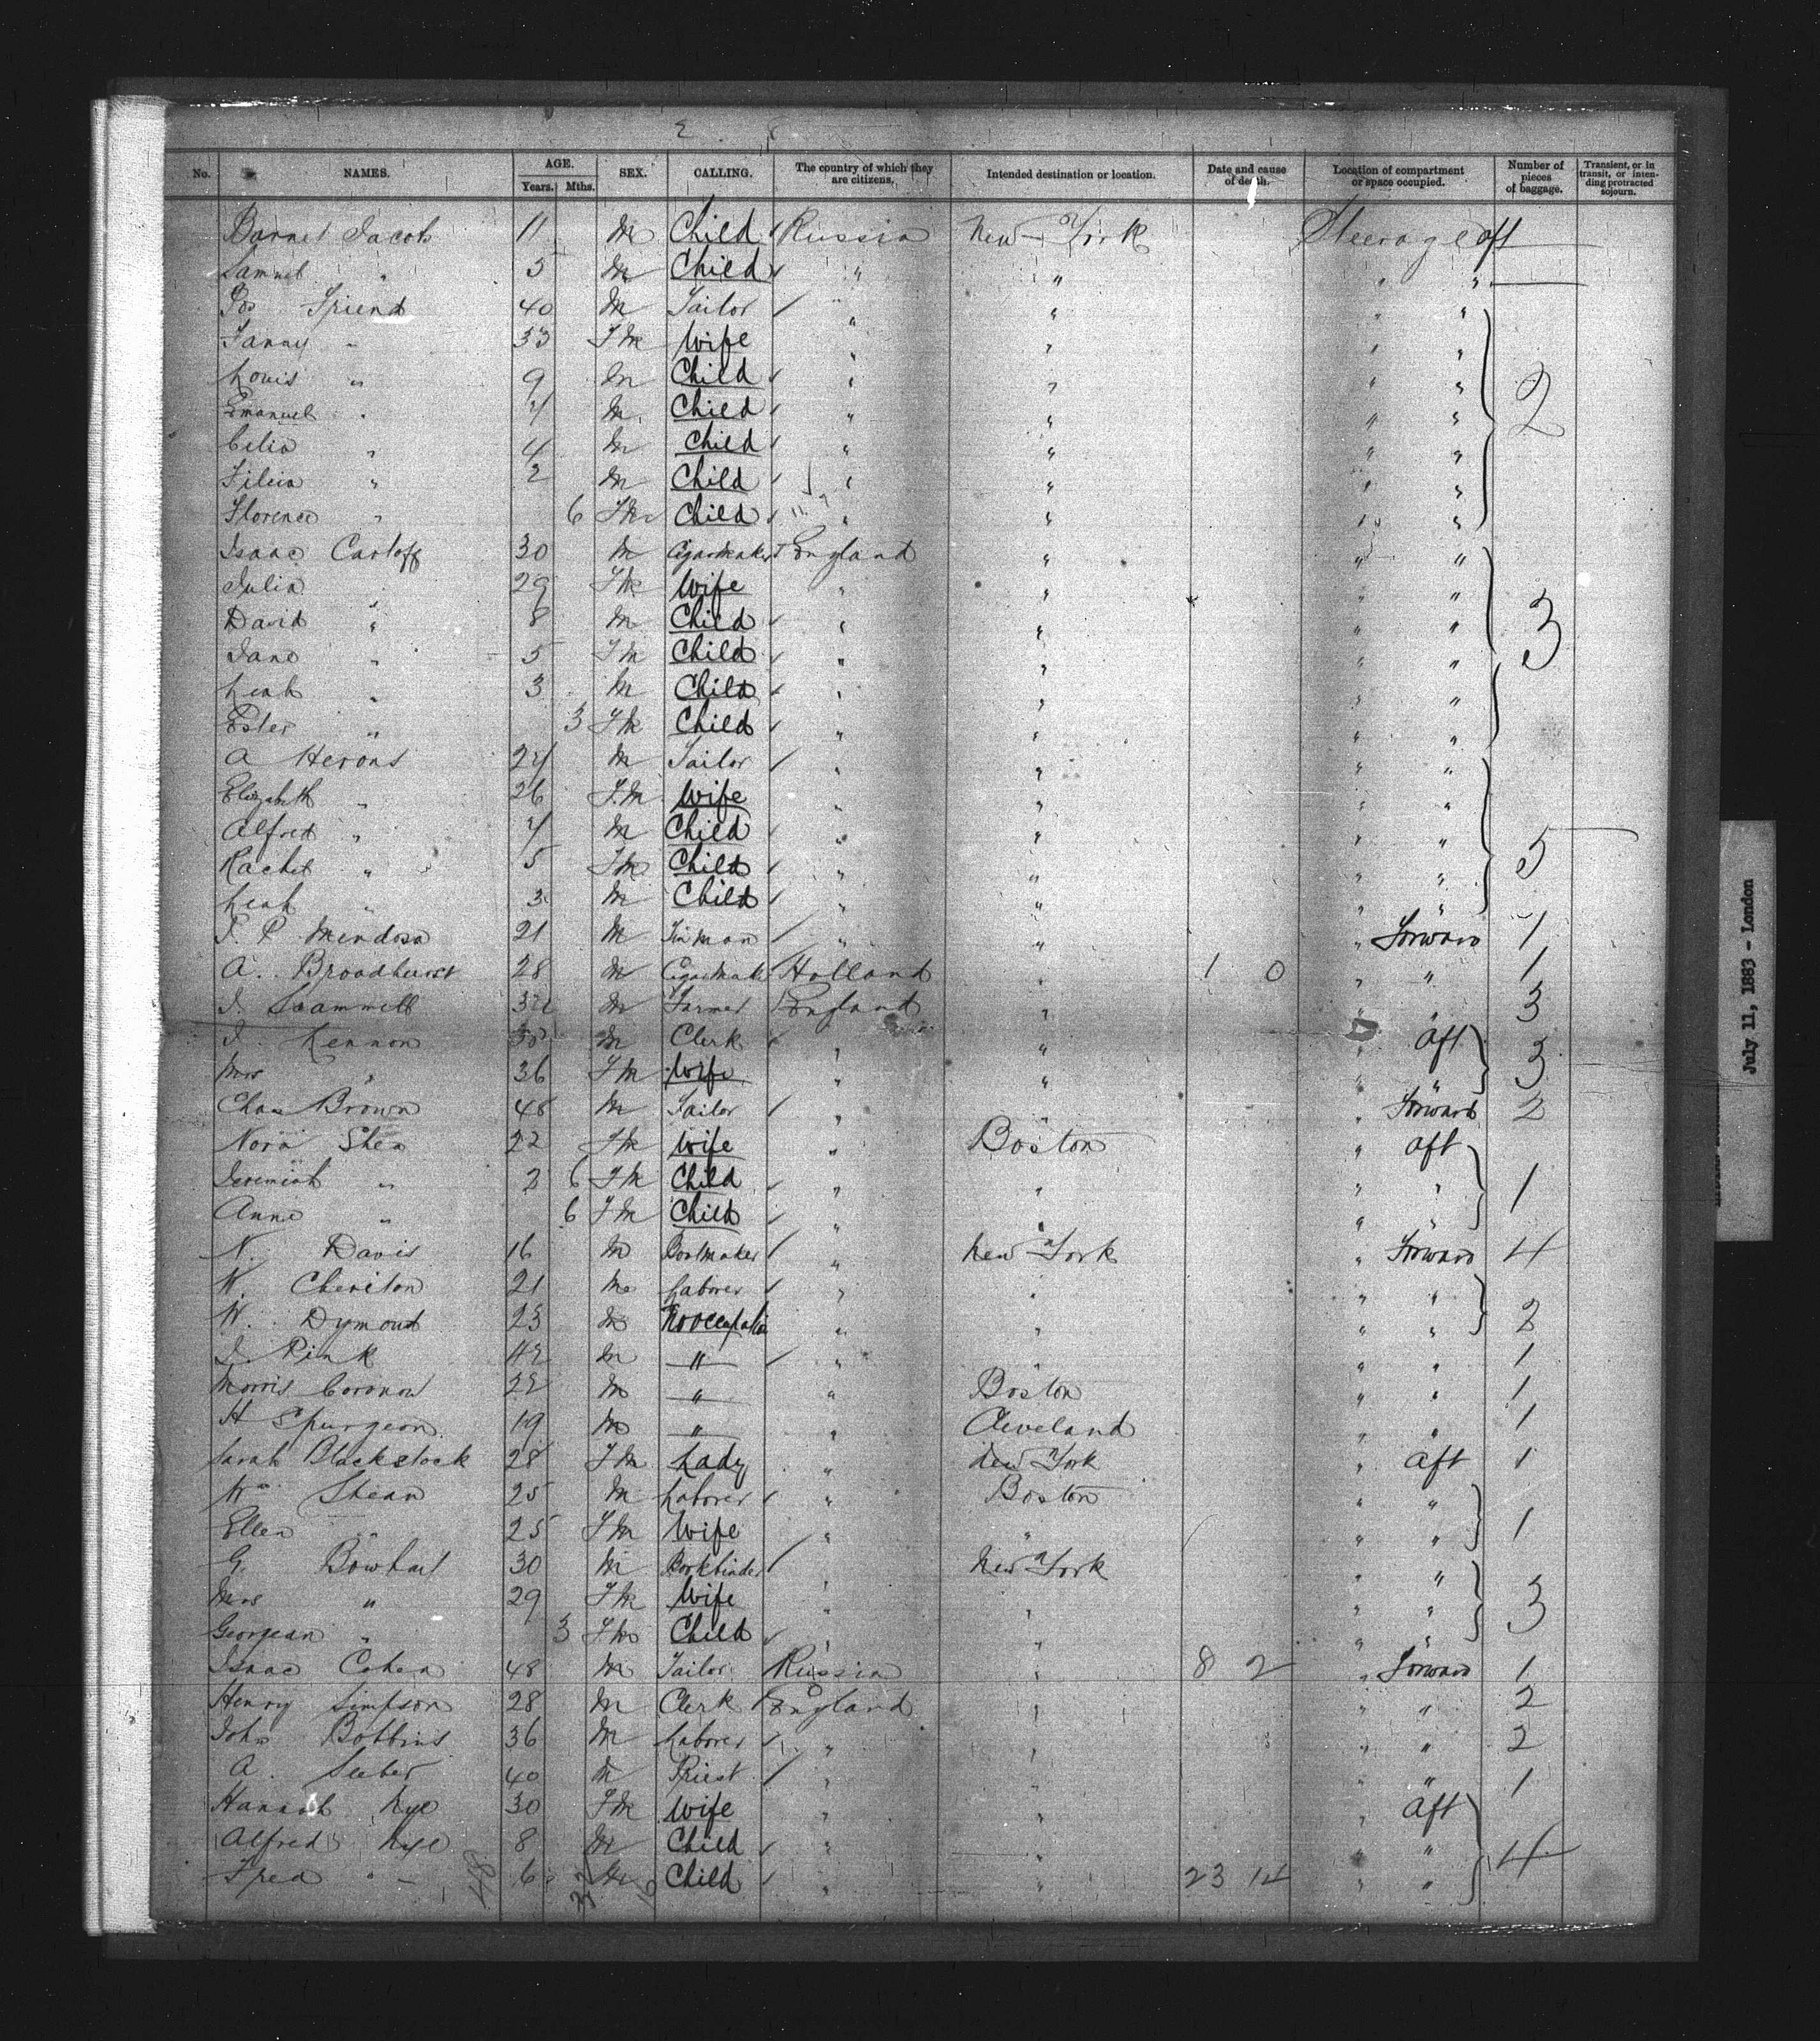 No. NAMES. AGE. Years. Mths. SEX. CALLING. The country of which they are citizens. Intended destination or location. Date and cause of death. Location of compartment or space occupied. Number of pieces of baggage. Transient, or in transit, or intending protracted sojourn.
Barnet Jacobs 11 M Child Russia New York Steerage aft
Samuel " 5 M Child " " " "
Friend 40 M Tailor " " " "
Fanny " 33 Fm Wife " " " "
Louis " 9 M Child " " " " 2
Emanuel " 7 M Child " " " "
Celia " 4 M Child " " " "
" 2 M Child " " " "
Florence " 6 Fm Child " " " "
Isaac Castoff 30 M Cigarmaker England " " "
Julia " 29 Fm Wife " " " "
David " 8 M Child " " " " 3
Jane " 5 Fm Child " " " "
Leah " 3 M Child " " " "
Ester " 3 Fm Child " " " "
A Herons 27 M Tailor " " " "
Elizabeth " 26 F.M Wife " " " "
Alfred " 7 M Child " " " "
Rachel " 5 Fm Child " " " " 5
Leah " 3 M Child " " " "
P. Mendosa 21 M Tinman " " " Forward 1
A. Broadhurst 28 M Cigarmaker Holland " 1 0 " " 1
Scammell M Farmer England " " " 3
Lennon M Clerk " " " Aft
Mrs " 36 Fm Wife " " " " 3
Chas Brown 48 M Tailor " " " Forward 2
Nora Shea 22 Fm Wife " Boston " aft
Jeremiah " 2 6 Fm Child " " " " 1
Anne " 6 Fm Child " " " "
N. Davis 16 M Bootmaker " New York " Forward 4
W. Cheriton 21 M Laborer " " " "
W. Dymond 23 M No occupation " " " " 2
J. Pink 42 M " " " " " 1
Morris 22 M " " Boston " " 1
H Spurgeon 19 M " " Cleveland " " 1
Sarah Blackstock 28 Fm Lady " New York " Aft 1
Wm Shean 25 M Laborer " Boston " "
Ellen " 25 Fm Wife " " " " 1
G. Bowhail 30 M Bookbinder " New York " "
Mrs " 29 Fm Wife " " " " 3
Georgean " 3 Fm Child " " " "
Isaac Cohen 48 M Tailor Russia " 8 2 " Forward 1
Henry Simpson 28 M Clerk England " " " 2
John Bobbins 36 M Laborer " " " " 2
A. Seeber 40 M Priest " " " " 1
Hannah Nye 30 Fm Wife " " " Aft
Alfred Nye 8 M Child " " " " 4
Fred " 6 M Child " " 23 14 " "
July 11, 1883 - London